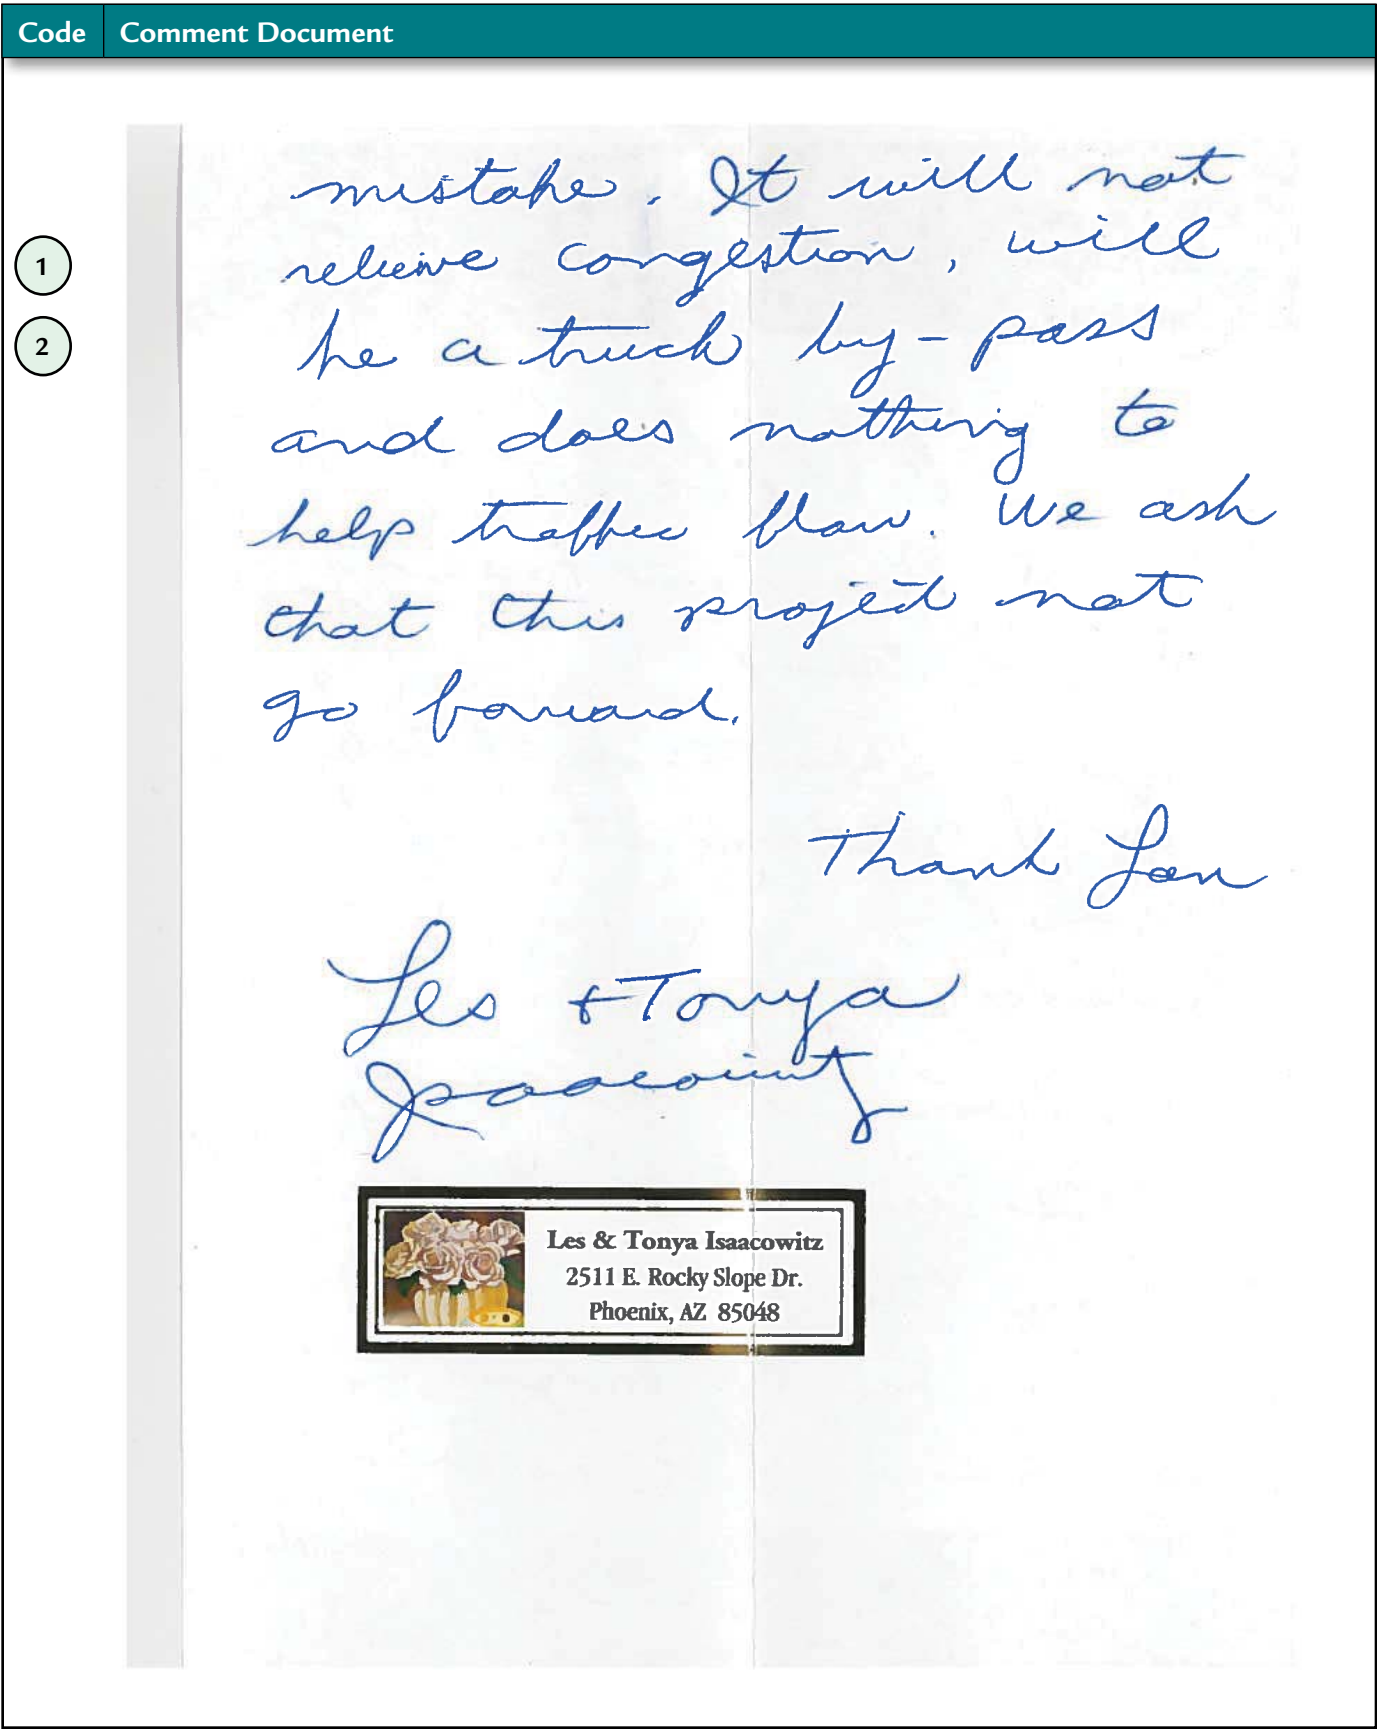 Code Comment Document
mistake. It will not
1
relieve congestion, will
2
be a truck by-pass
and does nothing to
help traffic flow. We ask
that this project not
go forward.
Thank You
Les + Tonya
Isaacowitz
Les & Tonya Isaacowitz
2511 E. Rocky Slope Dr.
Phoenix, AZ 85048